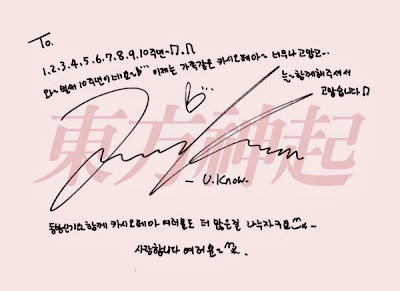 To.
1.2.3.4.5.6.7.8.9.10주년~♫.♫
와~ 벌써 10주년이네요~♪ 이제는 가족같은 카시오페아~ 너무나 고맙고...
늘~함께해주셔서
고맙습니다♫
東方神起
- U.Know.
동방신기와 함께 카시오페아 여러분도 더 많은걸 나누자구요^^...
사랑합니다 여러분~^^.